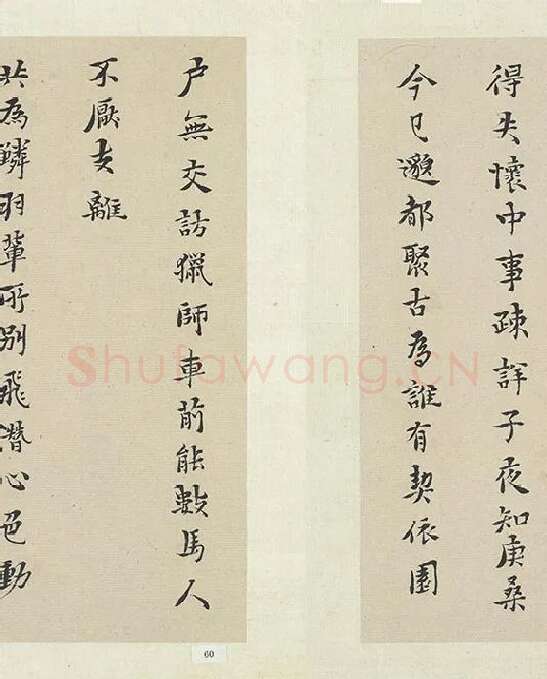 得失懷中事疎詳子夜知庚桑
今已邈都聚古為誰有契依園
戶無交訪獵師車前能數馬人
不厭支離
共為鱗羽輩所別飛潛心色動
Shufawang.CN
60